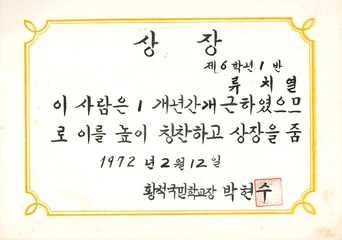 상장
제 6 학년 1 반
류치열
이 사람은 1 개년간개근하였으므
로 이를 높이 칭찬하고 상장을 줌
1972 년 2 월 12 일
황석국민학교장 박현수